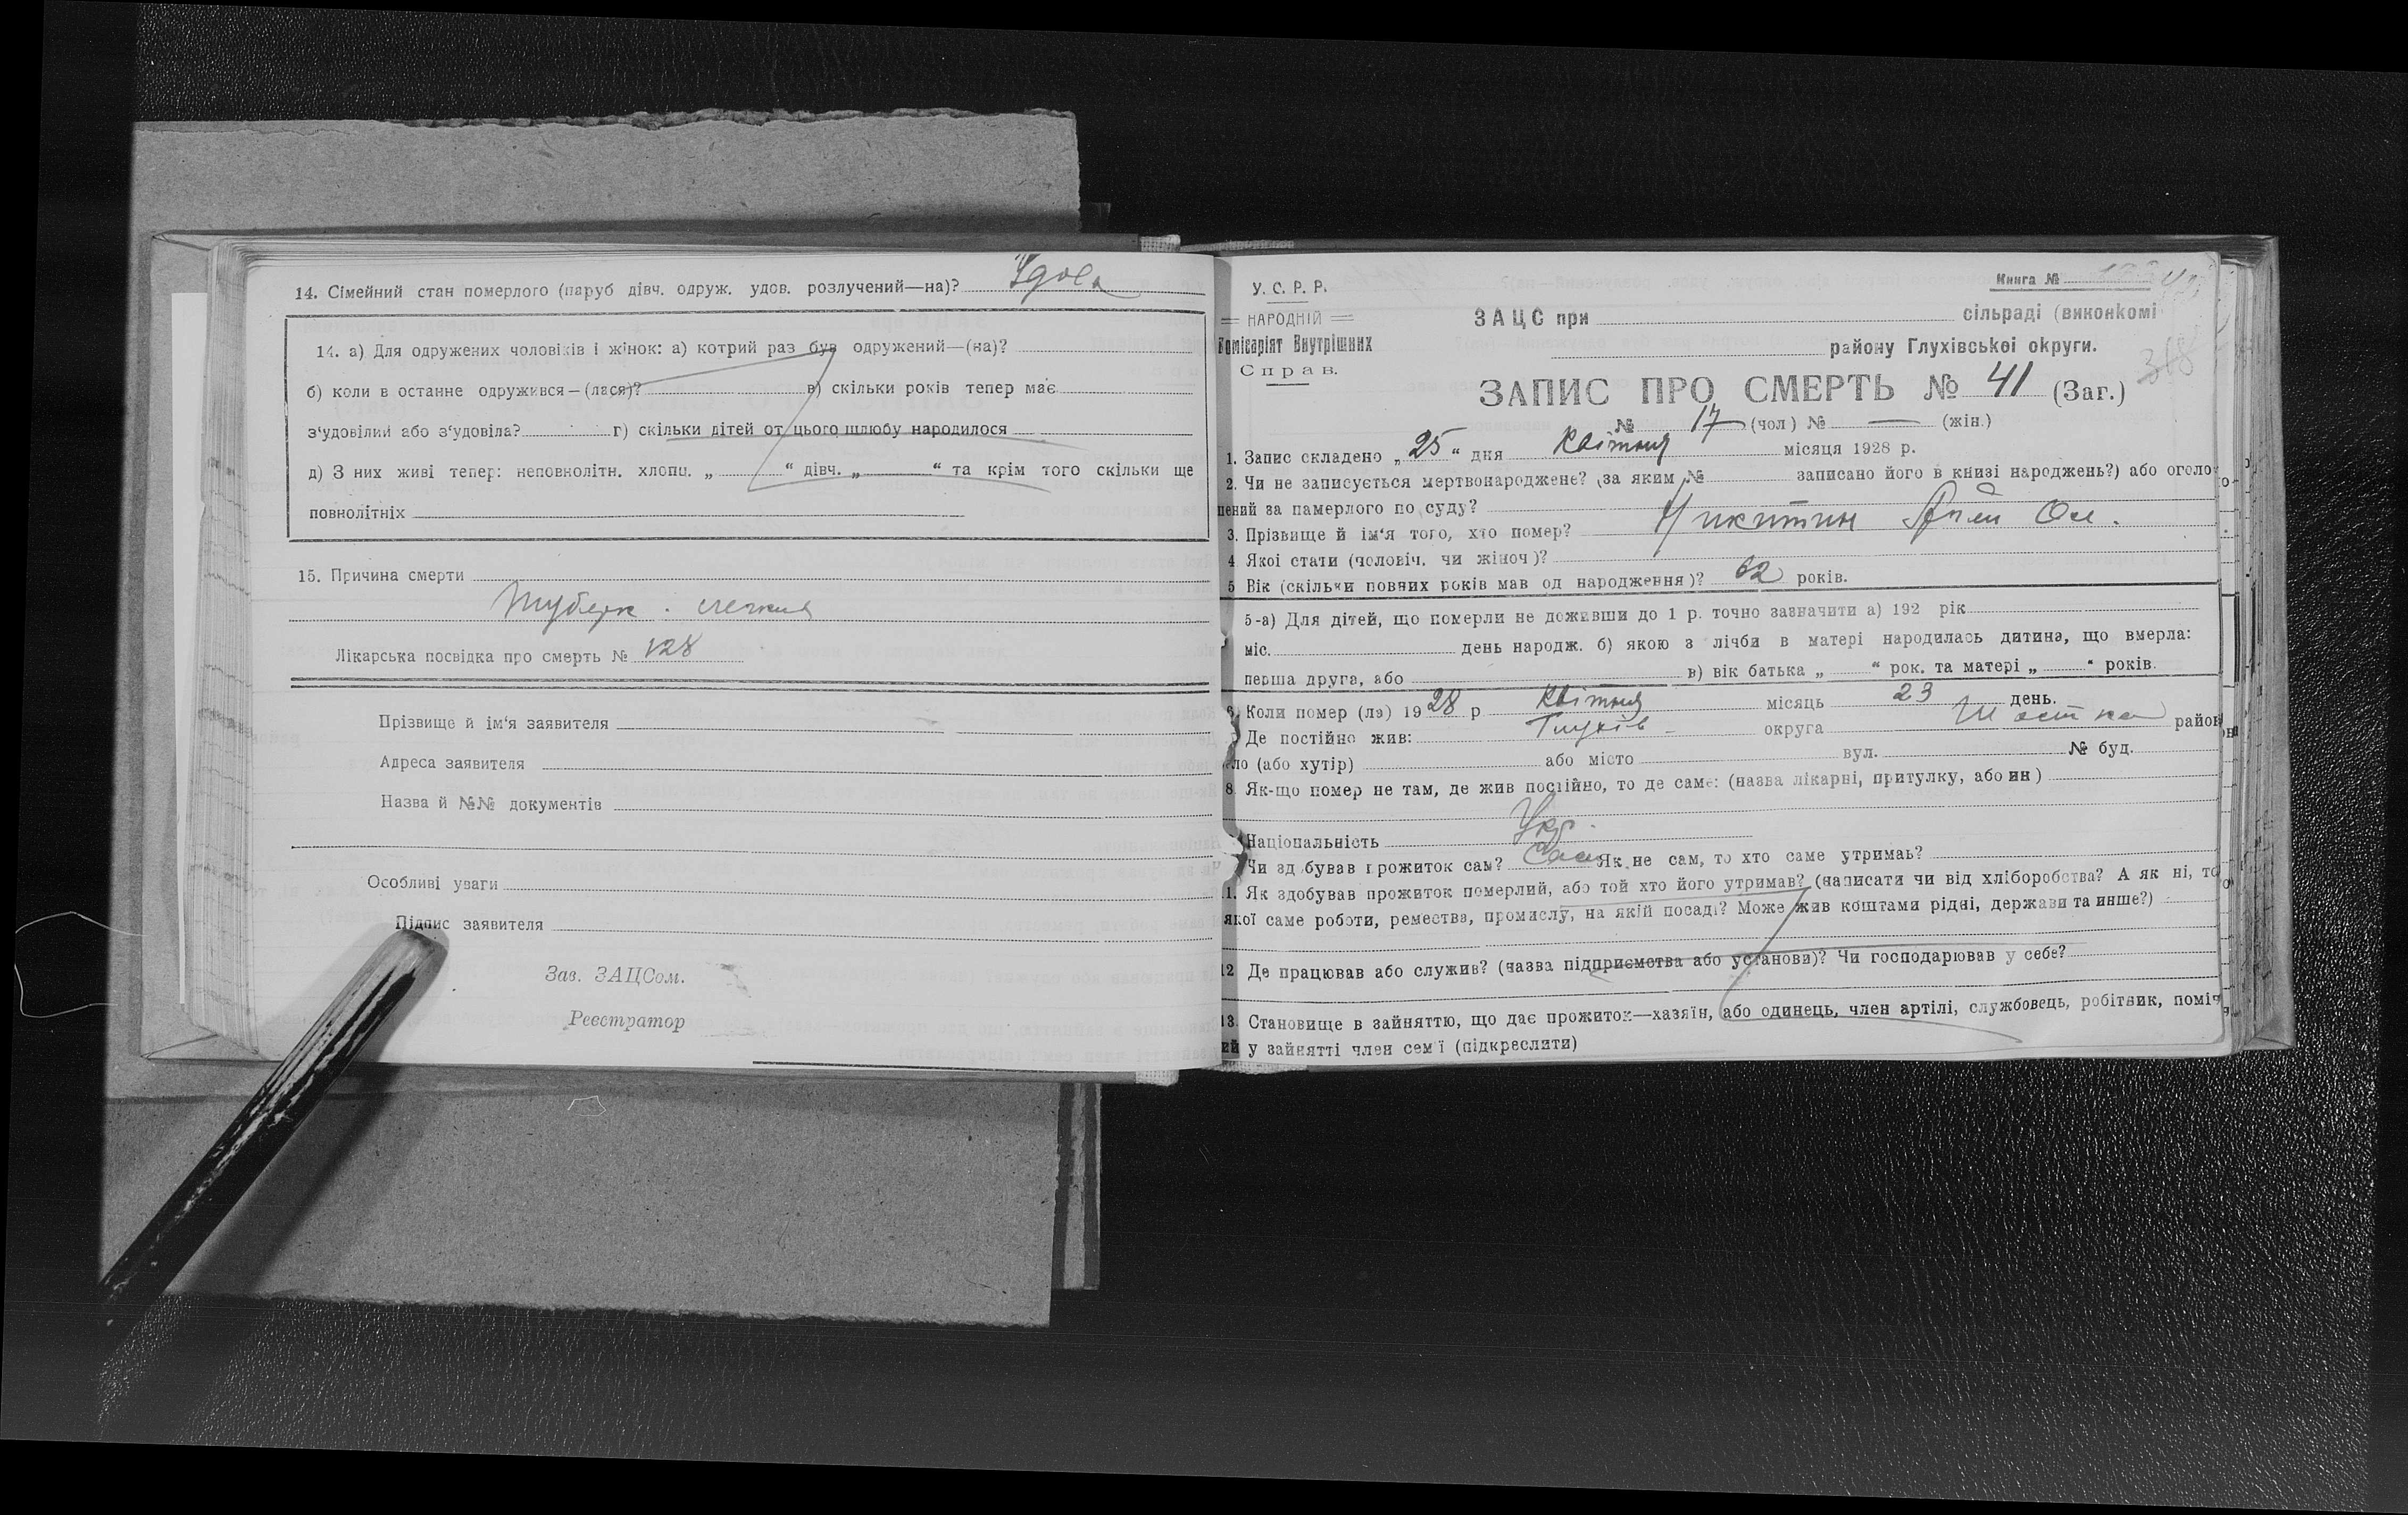 14. Сімейний стан померлого (паруб дівч. одруж. удов. розлучений—на)? Удова
14. а) Для одружених чоловіків і жінок: а) котрий раз був одружений—(на)?
б) коли в останнє одружився—(лася)? в) скільки років тепер має
з‘удовілий або з‘удовіла? г) скільки дітей от цього шлюбу народилося
д) З них живі тепер: неповнолітн. хлопц. „ “ дівч. „ “ та крім того скільки ще
повнолітніх
15. Причина смерти
Туберк. легких
Лікарська посвідка про смерть № 128
Прізвище й ім‘я заявителя
Адреса заявителя
Назва й №№ документів
Особливі уваги
Підпис заявителя
Зав. ЗАЦСом.
Реєстратор
У. С. Р. Р.
НАРОДНІЙ
Комісаріят Внутрішних
Справ.
Книга №
ЗАЦС при сільраді (виконкомі
району Глухівської округи.
318
ЗАПИС ПРО СМЕРТЬ № 41 (Заг.)
№ 17 (чол) № — (жін.)
1. Запис складено „25“ дня Квітня місяця 1928 р.
2. Чи не записується мертвонароджене? (за яким № записано його в книзі народжень?) або оголо
шений за памерлого по суду?
3. Прізвище й ім‘я того, хто помер? Никитин
4 Якої стати (чоловіч. чи жіноч)?
5 Вік (скільки повних років мав од народження)? 62 років.
5-а) Для дітей, що померли не доживши до 1 р. точно зазначити а) 192 рік
міс. день народж. б) якою з лічби в матері народилась дитина, що вмерла:
перша друга, або в) вік батька „ “ рок. та матері „ “ років.
6. Коли помер (ла) 1928 р Квітня місяць 23 день.
Де постійно жив: Глухів округа Шостка район
село (або хутір) або місто вул. № буд.
8. Як-що помер не там, де жив постійно, то де саме: (назва лікарні, притулку, або ин)
Національність Укр.
Чи здобував прожиток сам? Сам Як не сам, то хто саме утримав?
11. Як здобував прожиток померлий, або той хто його утримав? (написати чи від хліборобства? А як ні, то
якої саме роботи, ремества, промислу, на якій посаді? Може жив коштами рідні, держави та инше?)
12 Де працював або служив? (назва підприємства або установи)? Чи господарював у себе?
13. Становище в зайняттю, що дає прожиток—хазяїн, або одинець, член артілі, службовець, робітник, поміч
ий у зайнятті член сем‘ї (підкреслити)